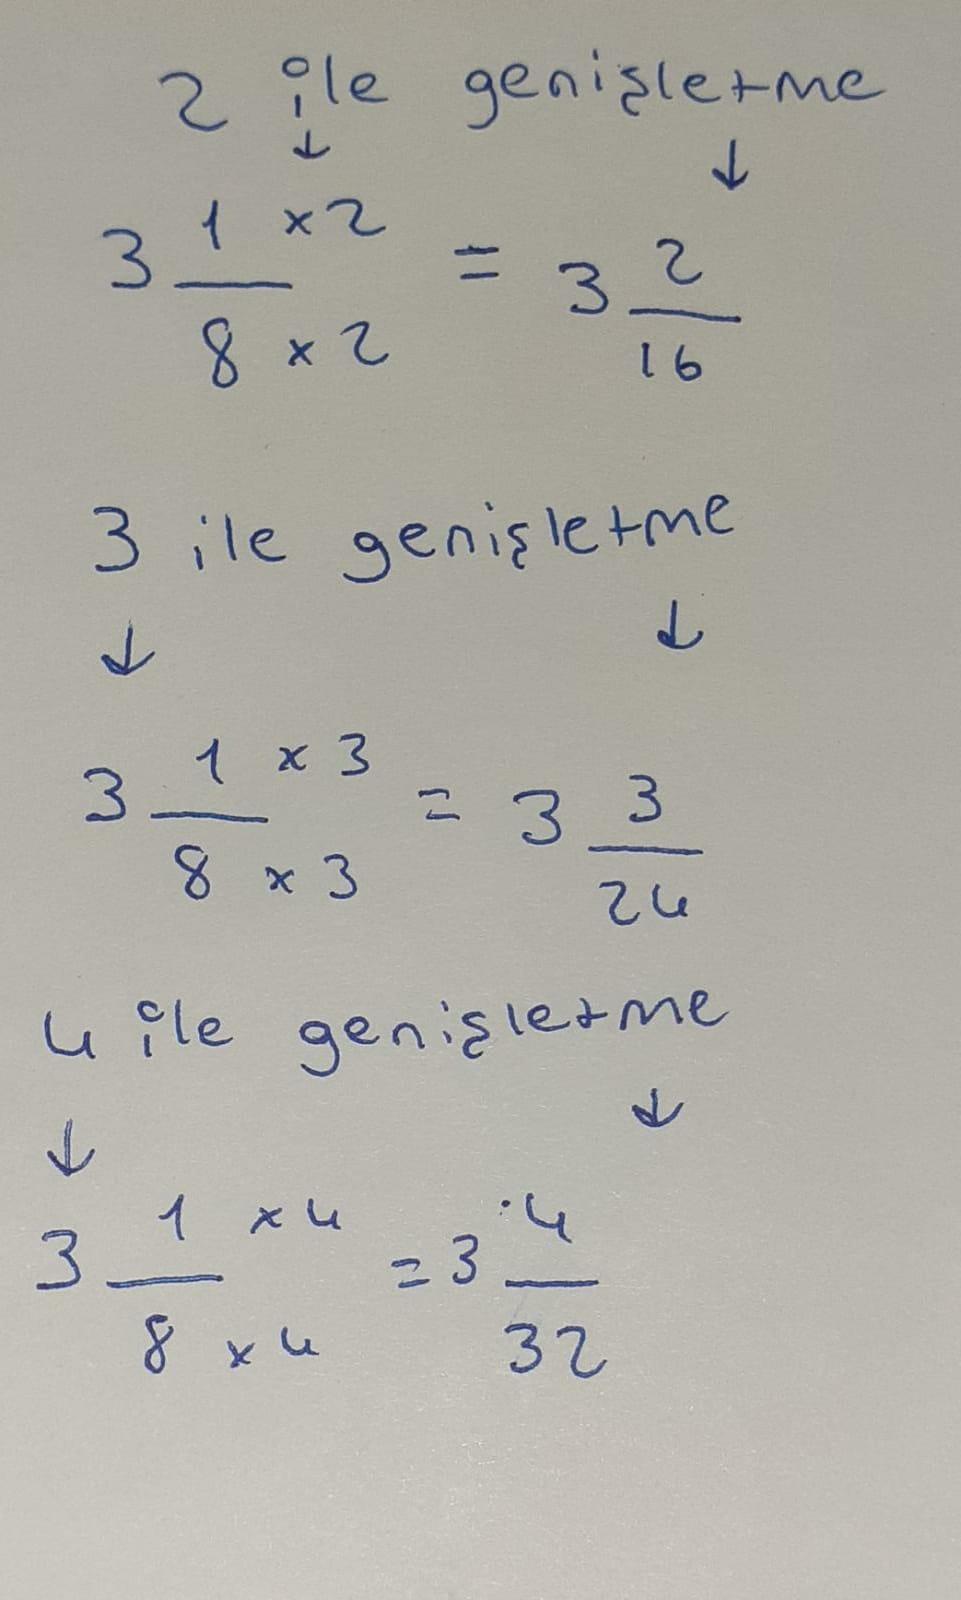 2 ile genişletme
↓ ↓
3 1 x 2 / 8 x 2 = 3 2/16
3 ile genişletme
↓ ↓
3 1 x 3 / 8 x 3 = 3 3/24
4 ile genişletme
↓ ↓
3 1 x 4 / 8 x 4 = 3 4/32